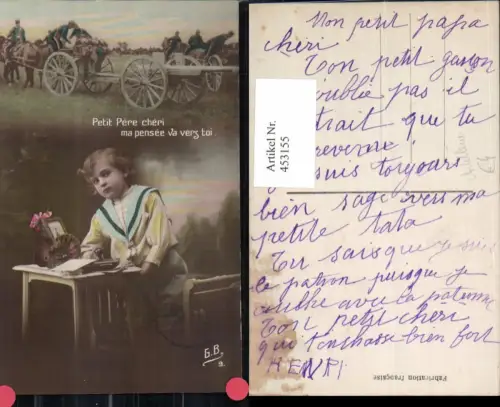 Petit Père chéri
ma pensée va verz toi
G.B.
Mon petit papa
chéri
Ton petit garson
oublie pas il
trait que tu
revienne !
suis toujours
bien sage vers ma
petite tata
Tu sais que je suis
le patron puisque je
couche avec la patronne
Ton petit chéri
qui t'embrasse bien fort
HENRI
Artikel Nr.
453155
Fabrication française